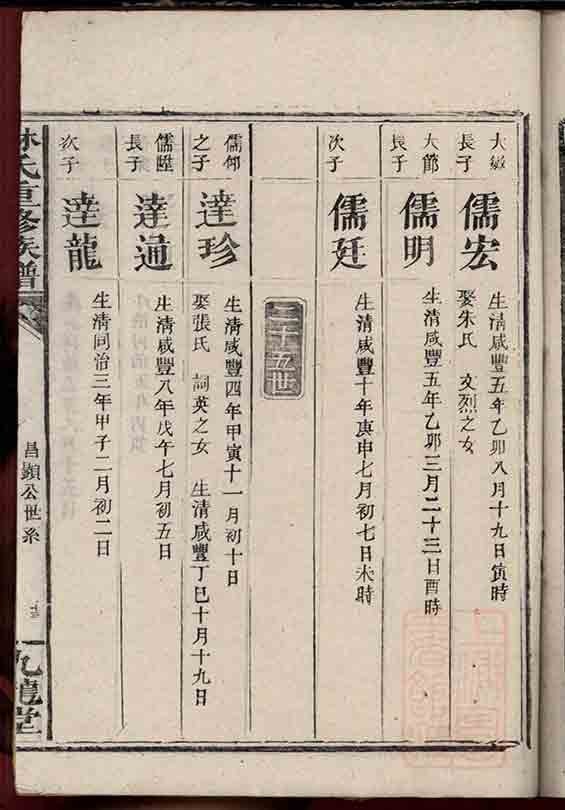 大
長子
儒宏
生清咸豐五年乙卯八月十九日寅時
娶朱氏 文烈之女
大節
長子
儒明
生清咸豐五年乙卯三月二十三日酉時
次子
儒廷
生清咸豐十年庚申七月初七日未時
二十五世
儒仰
之子
達珍
生清咸豐四年甲寅十一月初十日
娶張氏 詞英之女 生清咸豐丁巳十月十九日
儒陞
長子
達過
生清咸豐八年戊午七月初五日
次子
達龍
生清同治三年甲子二月初二日
林氏重修族譜
昌顯公世系
九龍堂